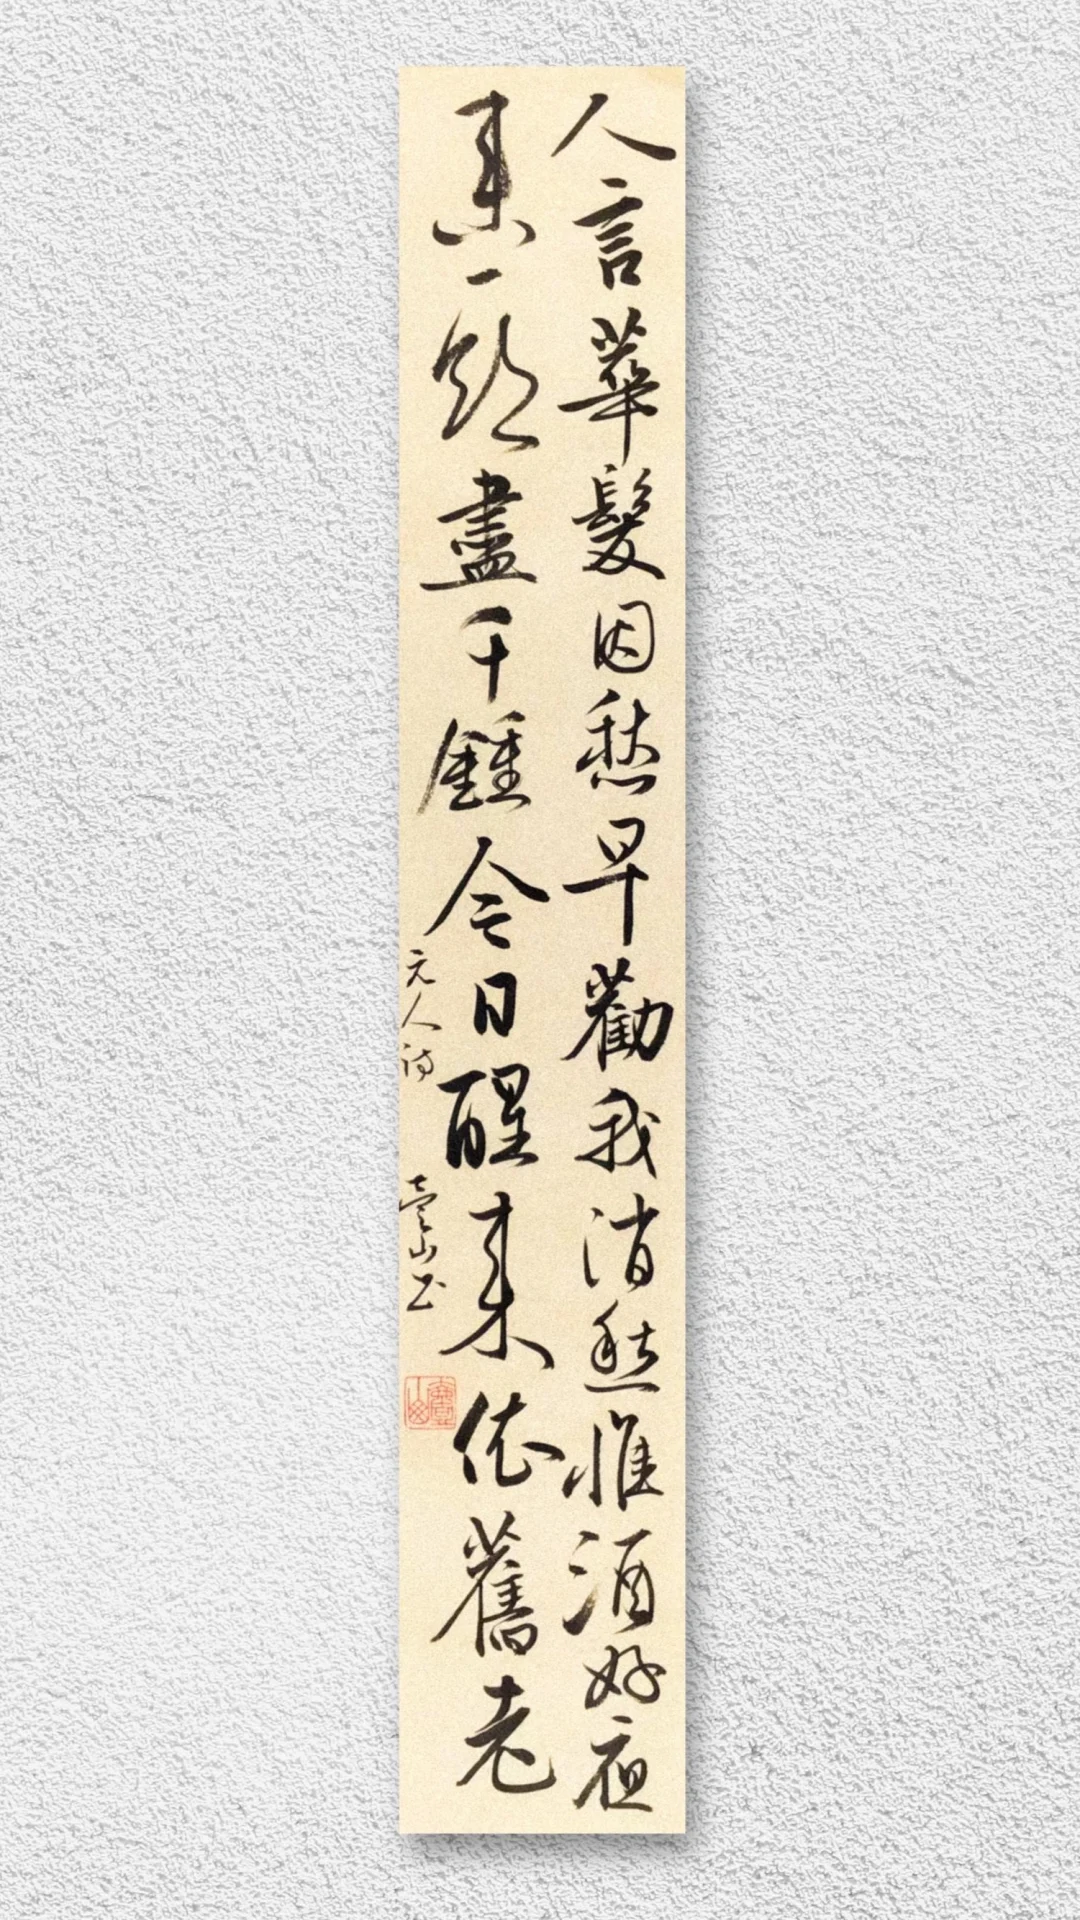 人言華髮因愁早勸我消愁惟酒好夜
來一飲盡千鍾今日醒來依舊老
元人詩
臺山书